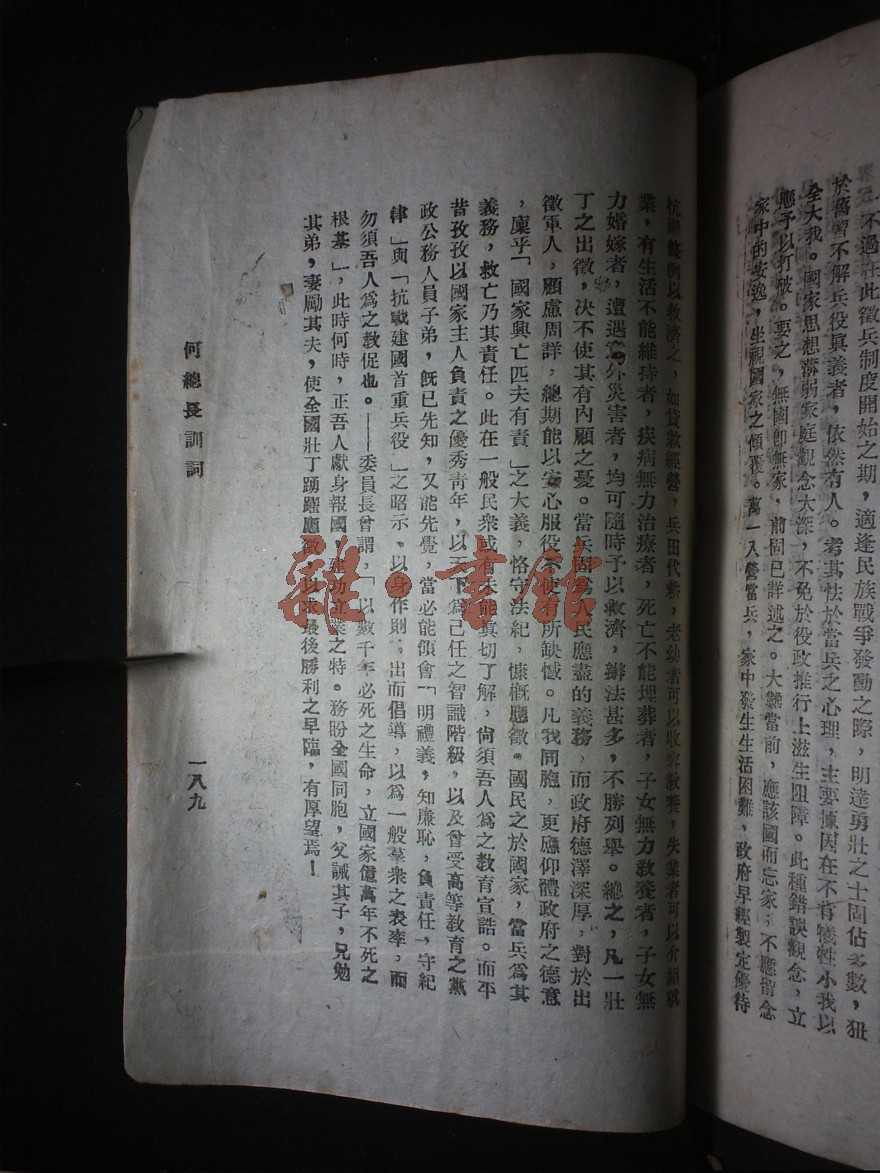 一不過在此徵兵制度開始之期，適逢民族戰爭發動之際，明達勇壯之士固佔多數，狃
於舊習不解兵役眞義者，依然有人。考其怯於當兵之心理，主要原因在不肯犧牲小我以
全大我。國家思想薄弱家庭觀念太深，不免於役政推行上滋生阻障。此種錯誤觀念，立
應予以打破。要之，無國卽無家，前固已詳述之。大難當前，應該國而忘家，不應留念
家中的安逸，坐視國家之傾覆。萬一入營當兵，家中發生生活困難，政府早經製定優待
抗屬條例以救濟之，如貸款經營，兵田代耕，老幼者可以收容敎養，失業者可以介紹就
業，有生活不能維持者，疾病無力治療者，死亡不能埋葬者，子女無力敎養者，子女無
力婚嫁者，遭遇意外災害者，均可隨時予以救濟，辦法甚多，不勝列舉。總之，凡一壯
丁之出徵，決不使其有內顧之憂。當兵固爲人民應盡的義務，而政府德澤深厚，對於出
徵軍人，顧慮周詳，總期能以安心服役不使有所缺憾。凡我同胞，更應仰體政府之德意
，凜乎「國家興亡匹夫有責」之大義，恪守法紀，慷概應徵。國民之於國家，當兵爲其
義務，救亡乃其責任。此在一般民衆或有未能眞切了解，尙須吾人爲之敎育宣誥。而平
昔孜孜以國家主人負責之優秀靑年，以天下爲己任之智識階級，以及曾受高等敎育之黨
政公務人員子弟，旣已先知，又能先覺，當必能領會「明禮義，知廉恥，負責任，守紀
律」與「抗戰建國首重兵役」之昭示，以身作則，出而倡導，以爲一般羣衆之表率，而
勿須吾人爲之敎促也。——委員長曾謂，「以數千年必死之生命，立國家億萬年不死之
根基」，此時何時，正吾人獻身報國，建功立業之特。務盼全國同胞，父誡其子，兄勉
其弟，妻勵其夫，使全國壯丁踴躍應徵，以求最後勝利之早臨，有厚望焉！
何總長訓詞
一八九
雜·書館